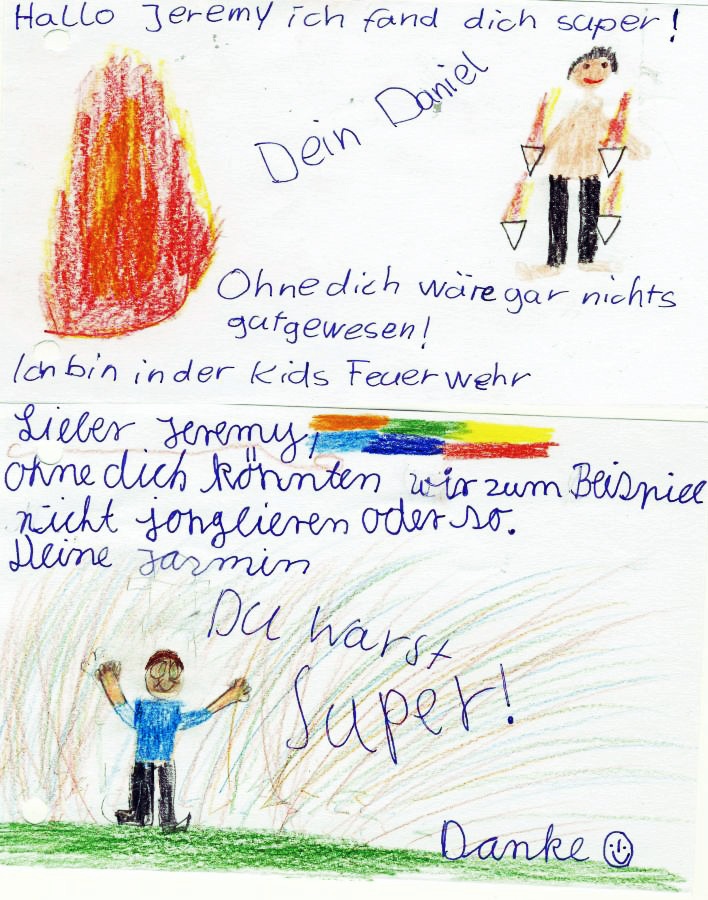 Hallo Jeremy ich fand dich super!
Dein Daniel
Ohne dich wäre gar nichts
gutgewesen!
Ich bin in der Kids Feuerwehr
Lieber Jeremy,
ohne dich könnten wir zum Beispiel
nicht jonglieren oder so.
Deine Jazmin
Du warst
Super!
Danke